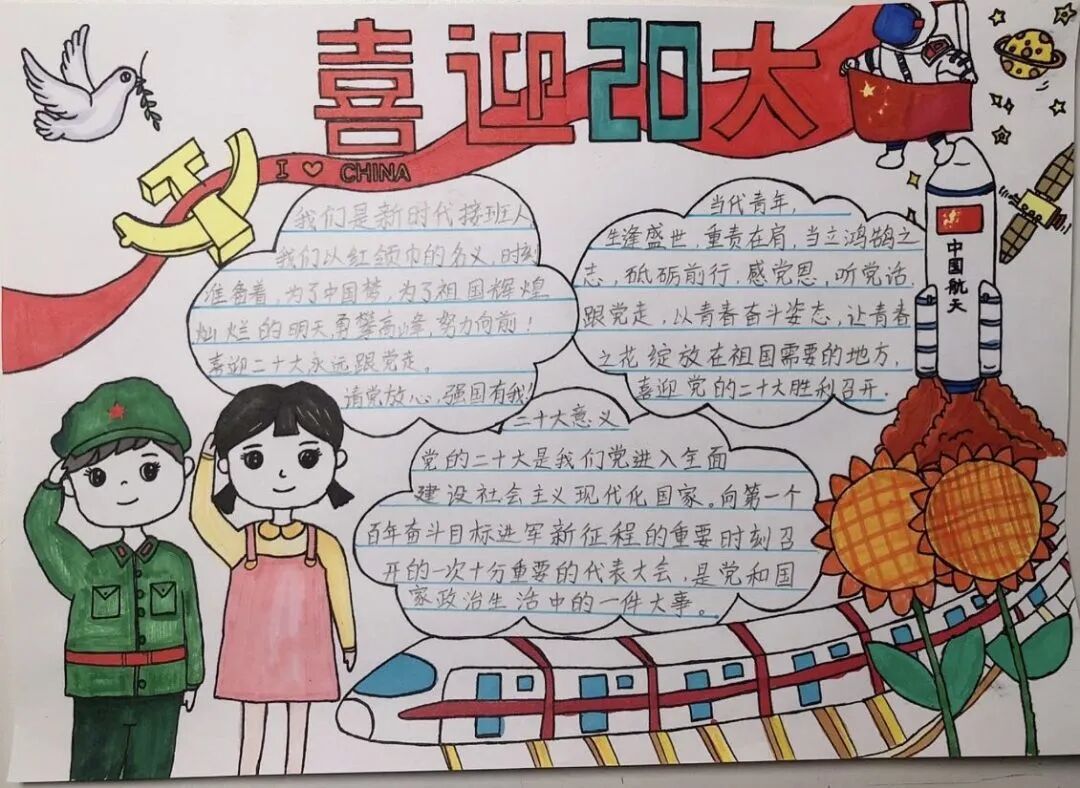 喜迎20大
I ♥ CHINA
我们是新时代接班人
我们以红领巾的名义,时刻
准备着,为了中国梦,为了祖国辉煌
灿烂的明天,勇攀高峰,努力向前!
喜迎二十大永远跟党走。
请党放心,强国有我!
当代青年,
生逢盛世,重责在肩,当立鸿鹄之
志,砥砺前行,感党恩,听党话,
跟党走,以青春奋斗姿态,让青春
之花绽放在祖国需要的地方,
喜迎党的二十大胜利召开.
二十大意义
党的二十大是我们党进入全面
建设社会主义现代化国家。向第一个
百年奋斗目标进军新征程的重要时刻召
开的一次十分重要的代表大会,是党和国
家政治生活中的一件大事。
中国航天